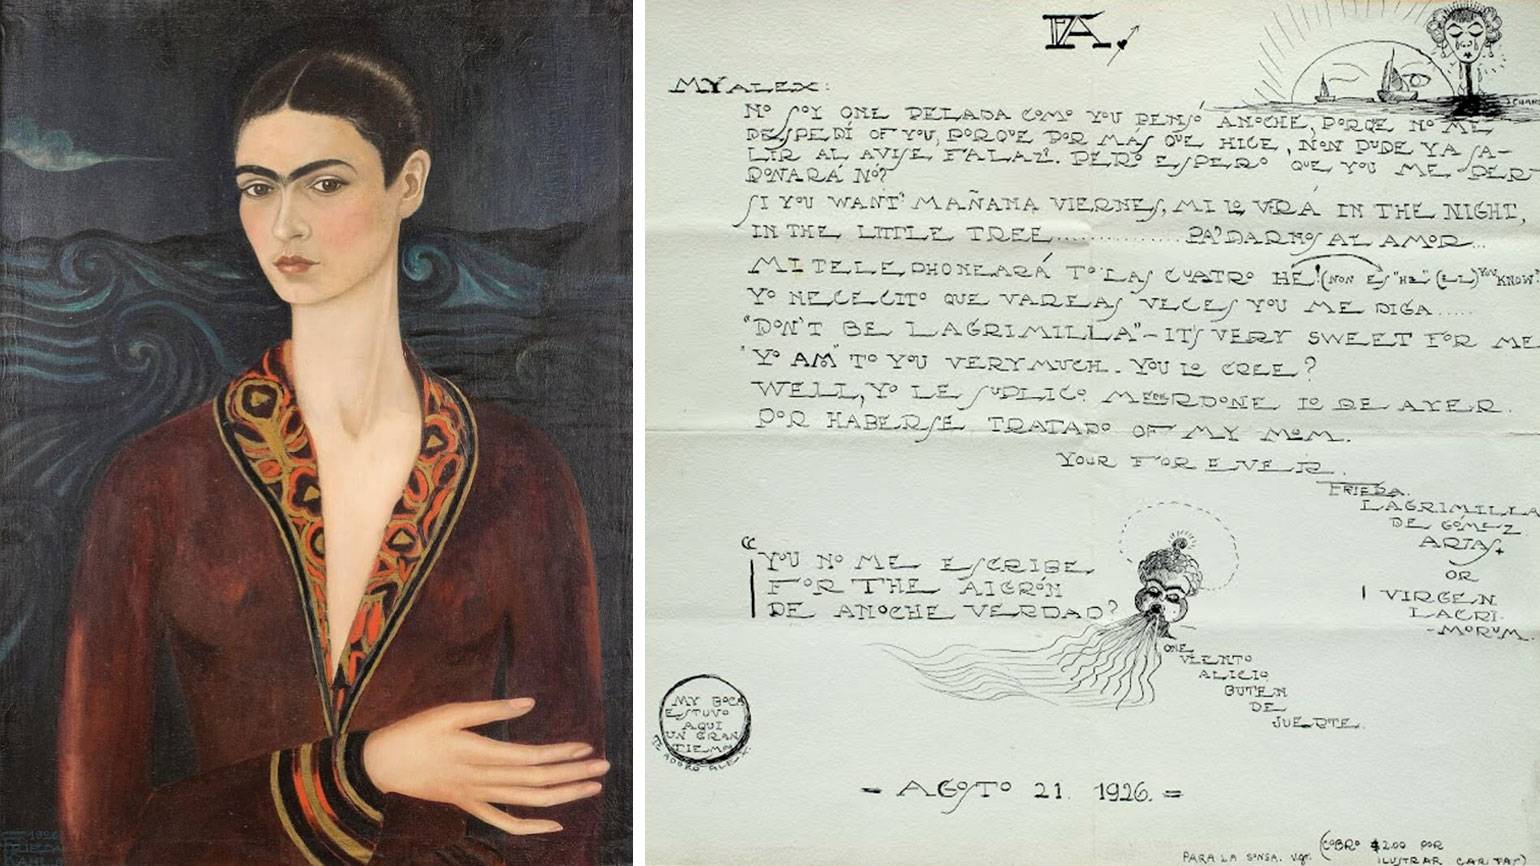 1926
FRIEDA
KAHL
MY ALEX:
NO SOY ONE PELADA COMO YOU PENSÓ ANOCHE, PORQE NO ME
DESPEDÍ OF YOU, PORQUE POR MÁS QUE HICE, NON PUDE YA SA-
LIR AL AVISE FALAZ!. PERO ESPERO QUE YOU ME PER-
DONARÁ NO?
SI YOU WANT MAÑANA VIERNES, MI LO VRÁ IN THE NIGHT,
IN THE LITTLE TREE............... PA'DARNOS AL AMOR...
MI TELEPHONEARÁ TO LAS CUATRO HE! (NON ES "HE" (EL) YOU KNOW?
YO NECECITO QUE VAREAS VECES YOU ME DIGA.....
"DON'T BE LAGRIMILLA" - IT'S VERY SWEET FOR ME
"YO AM" TO YOU VERY MUCH. YOU LO CREE?
WELL, YO LE SUPLICO ME LO DE AYER.
POR HABERSE TRATADO OF MY MOM.
YOUR FOR EVER.
FRIEDA.
LAGRIMILLA
DE GÓMEZ
ARIAS
OR
VIRGEN
LACRI-
-MORUM.
"YOU NO ME ESCRIBE
FOR THE AIGRÓN
DE ANOCHE VERDAD?
ONE
VIENTO
ALICIO
BUTEN
DE
JUERTE.
MY BOCA
ESTUVO
AQUI
UN GRAN
TIEMPO
TE ADORO ALEX
- AGOSTO 21. 1926. =
(COBRO $2.00 POR
PARA LA SONSA. ILUSTRAR CARITAS)